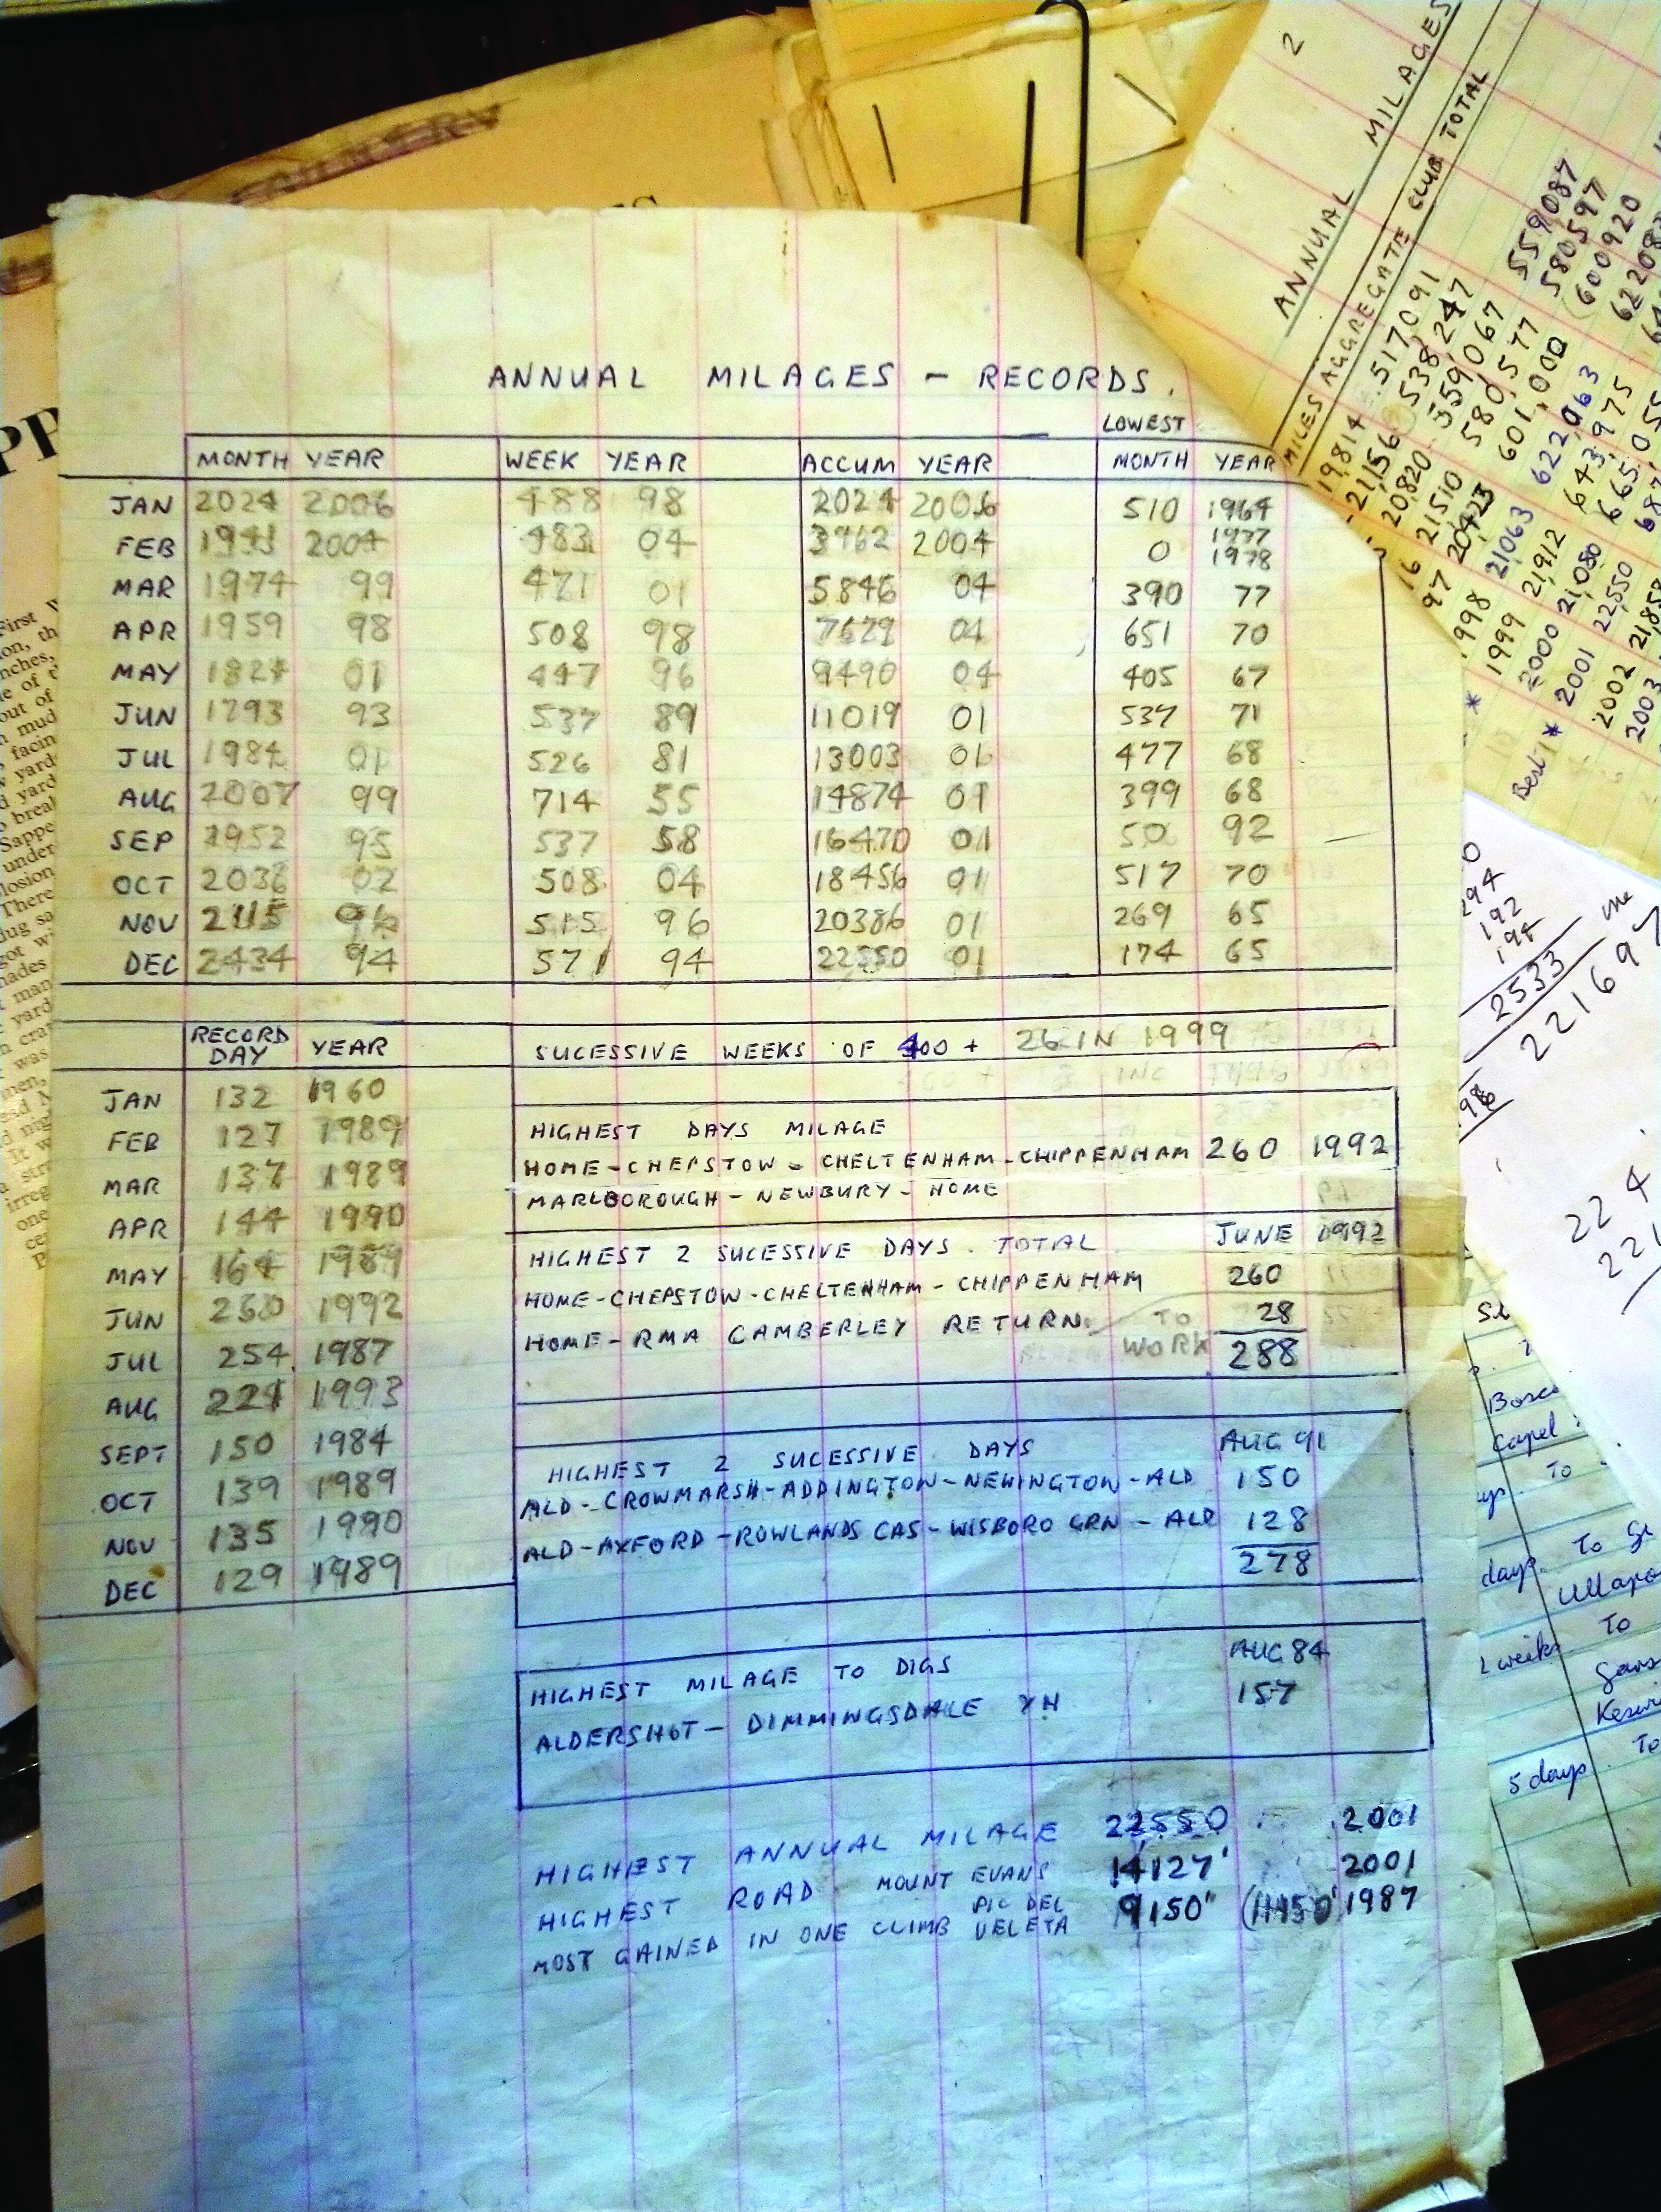 ANNUAL MILAGES - RECORDS.
LOWEST
MONTH YEAR WEEK YEAR ACCUM YEAR MONTH YEAR
JAN 2024 2006 488 98 2024 2006 510 1964
FEB 1941 2004 483 04 3962 2004 0 1977 1978
MAR 1974 99 471 01 5846 04 390 77
APR 1959 98 508 98 04 651 70
MAY 1824 01 447 96 9490 04 405 67
JUN 1793 93 537 89 11019 01 537 71
JUL 1984 01 526 81 13003 01 477 68
AUG 2007 99 714 55 14874 01 399 68
SEP 1952 95 537 58 16470 01 50 92
OCT 2036 02 508 04 18456 01 517 70
NOV 2115 96 515 96 20386 01 269 65
DEC 2434 94 571 94 22550 01 174 65
RECORD DAY YEAR
JAN 132 1960
FEB 127 1989
MAR 137 1989
APR 144 1990
MAY 164 1989
JUN 260 1992
JUL 254 1987
AUG 221 1993
SEPT 150 1984
OCT 139 1989
NOV 135 1990
DEC 129 1989
SUCESSIVE WEEKS OF 400 + 26 IN 1999
HIGHEST DAYS MILAGE
HOME - CHEPSTOW - CHELTENHAM - CHIPPENHAM 260 1992
MARLBOROUGH - NEWBURY - HOME
HIGHEST 2 SUCESSIVE DAYS. TOTAL JUNE 1992
HOME - CHEPSTOW - CHELTENHAM - CHIPPENHAM 260
HOME - RMA CAMBERLEY RETURN. TO WORK 28
288
HIGHEST 2 SUCESSIVE DAYS AUG 91
ALD - CROWMARSH - ADDINGTON - NEWINGTON - ALD 150
ALD - AXFORD - ROWLANDS CAS - WISBORO GRN - ALD 128
278
HIGHEST MILAGE TO DIGS AUG 84
ALDERSHOT - DIMMINGSDALE YH 157
HIGHEST ANNUAL MILAGE 22550 2001
HIGHEST ROAD MOUNT EVANS 14127' 2001
MOST GAINED IN ONE CLIMB PIC DEL VELETA 9150" 1987
2
ANNUAL MILAGES
MILES AGGREGATE CLUB TOTAL
19,814 517,091
21,156 538,247 559087
20,820 559,067 580597
21510 580,577 (600920
97 20,423 601,000
1998 21,063 622,063
* 1999 21,912 643,975
2000 21,080 665,055
Best * 2001 22,550
2002
2003
294
192
194
2533
221697
224
221
Capel
To
days. To
Ullapo
2 weeks To
5 days. To